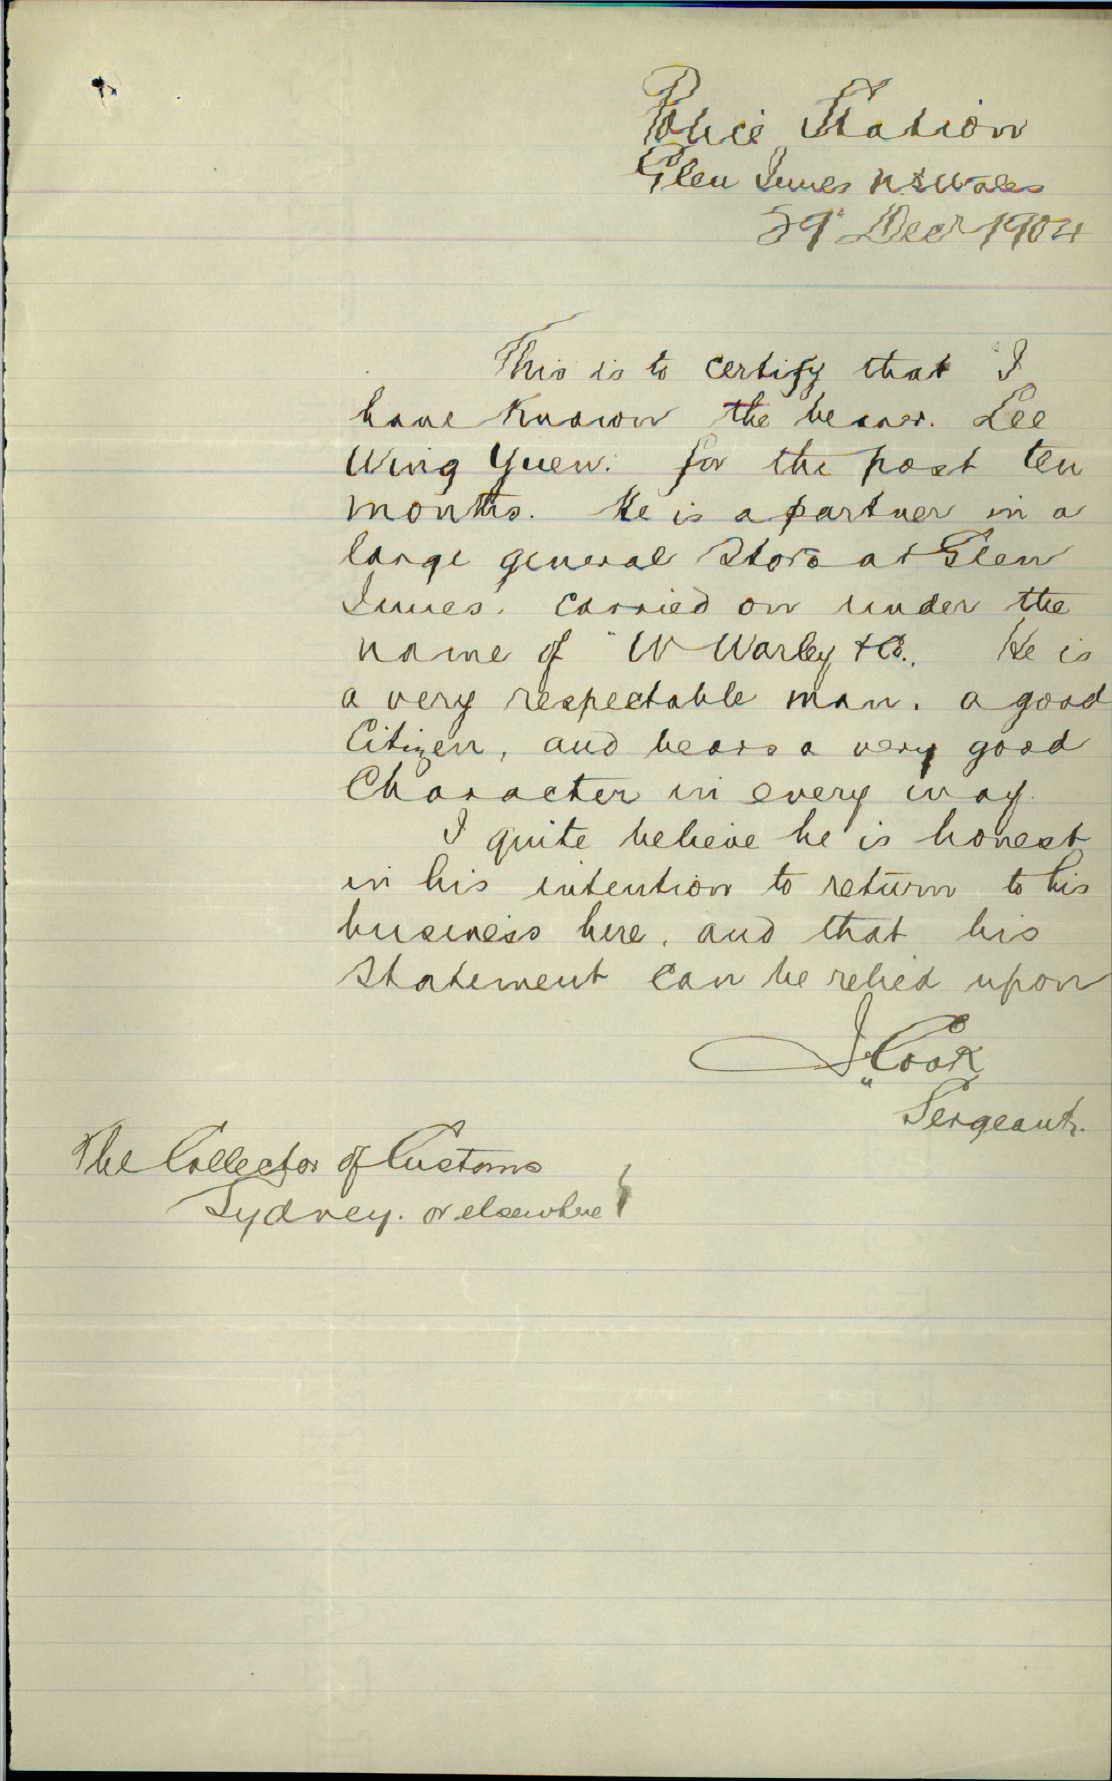 Police Station
Glen Innes N.S. Wales
29th Decr 1904
This is to certify that I
have known the bearer. Lee
Wing Yuen. for the past ten
months. He is a partner in a
large general Store at Glen
Innes. carried on under the
name of "W Warley & Co., He is
a very respectable man. a good
Citizen, and bears a very good
Character in every way.
I quite believe he is honest
in his intention to return to his
business here, and that his
Statement can be relied upon
J. Cook
Sergeant.
The Collector of Customs
Sydney. or elsewhere }